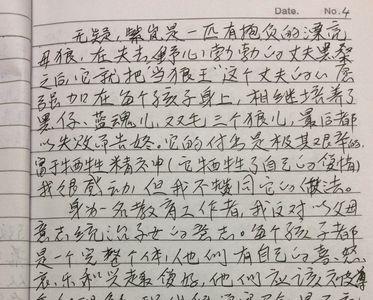 Date.　　No. 4
无疑，紫岚是一匹有抱负的漂亮
母狼，在失去野心勃勃的丈夫黑桑
之后，它就把"当狼王"这个丈夫的心愿
强加在每个孩子身上，相继培养了
黑仔、蓝魂儿、双毛三个狼儿，最后都
以失败宣告终。它的付出是极其艰辛的，
富于牺牲精神（它牺牲了自己的爱情）
我很感动，但我不赞同它的做法。
身为一名教育工作者，我反对以父母
意志统治子女的意志。每个孩子都
是一个完整个体，他们有自己的喜怒
哀乐和兴趣爱好，他们应该